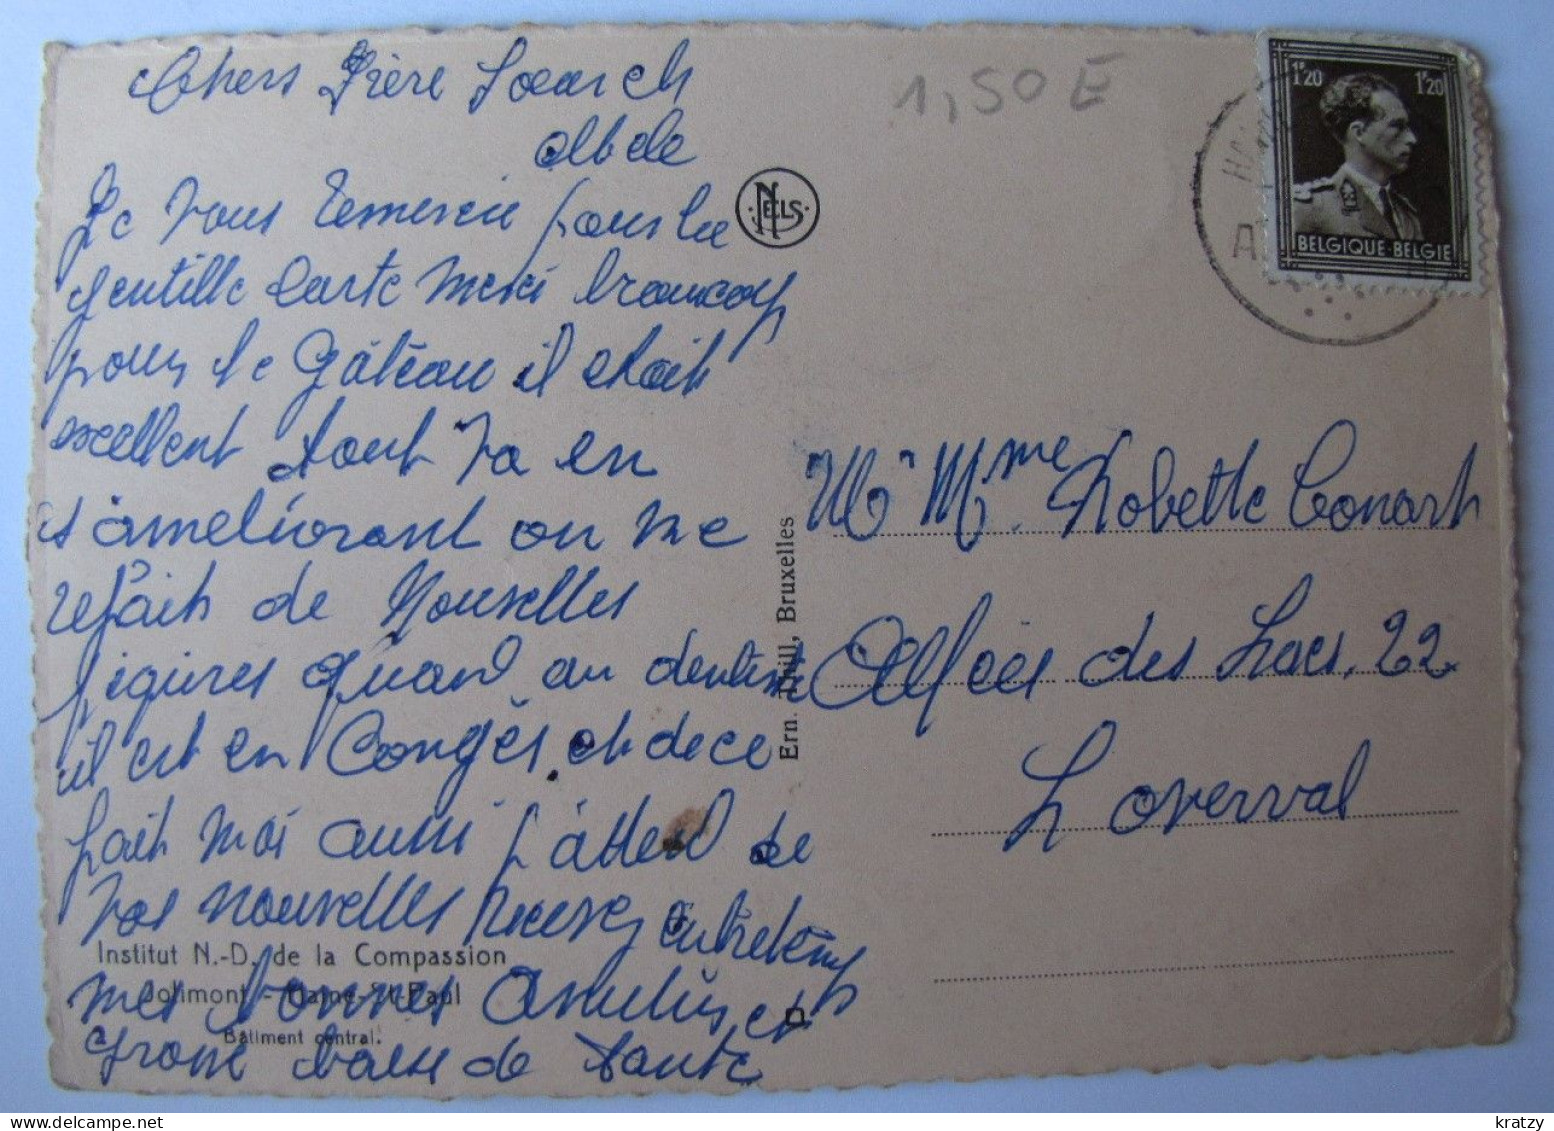 Chers Frère Soeur ch
1,50 E
1F20 1F20
BELGIQUE-BELGIE
NELS
Je vous remercie pour la
gentille carte merci
pour le Gâteau il était
excellent tout va en
s'améliorant on me
refait de Nouvelles
quand au dentiste
il est en Congés et de ce
fait moi aussi j'attend de
vos nouvelles recevez entretemps
mes bonnes Amitiés et
grosse de santé
Institut N.-D. de la Compassion
Jolimont - Haine-St-Paul
Bâtiment central.
Ern. Thill, Bruxelles
M Mme Robette Conart
des Lacs. 22
Loverval